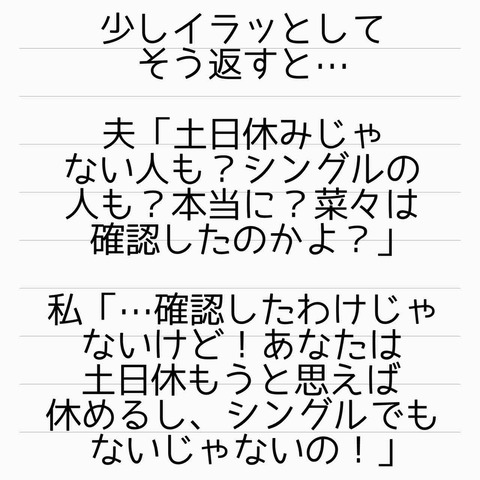 少しイラッとして
そう返すと…
夫「土日休みじゃ
ない人も？シングルの
人も？本当に？菜々は
確認したのかよ？」
私「…確認したわけじゃ
ないけど！あなたは
土日休もうと思えば
休めるし、シングルでも
ないじゃないの！」